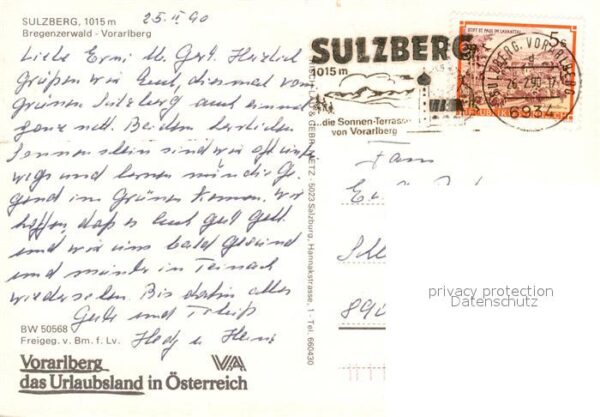 SULZBERG, 1015 m
Bregenzerwald - Vorarlberg
25.II 90
Liebe Erni u. Gert. Herzlich
grüßen wir Euch, diesmal vom
Grünen Sulzberg auch einmal
ganz nett. Bei dem herrlichen
Sonnenschein sind wir oft unter
wegs und lernen nun die Ge
gend im Grünen kennen. Wir
hoffen, daß es Euch gut geht
und wir uns bald gesund
und munter in
wiedersehen. Bis dahin alles
Gute und
u. Heini
BW 50568
Freigeg. v. Bm. f. Lv.
Vorarlberg
das Urlaubsland in Österreich
VA
& GEBR. METZ - 5023 Salzburg, Hannakstrasse, 1 - Tel. 660430
SULZBERG
1015 m
..die Sonnen-Terrasse
von Vorarlberg
STIFT ST. PAUL IM LAVANTTAL
5S
REPUBLIK
SULZBERG, VORARLBERG
d
26.-2.90-17
6934
Fam
890
privacy protection
Datenschutz